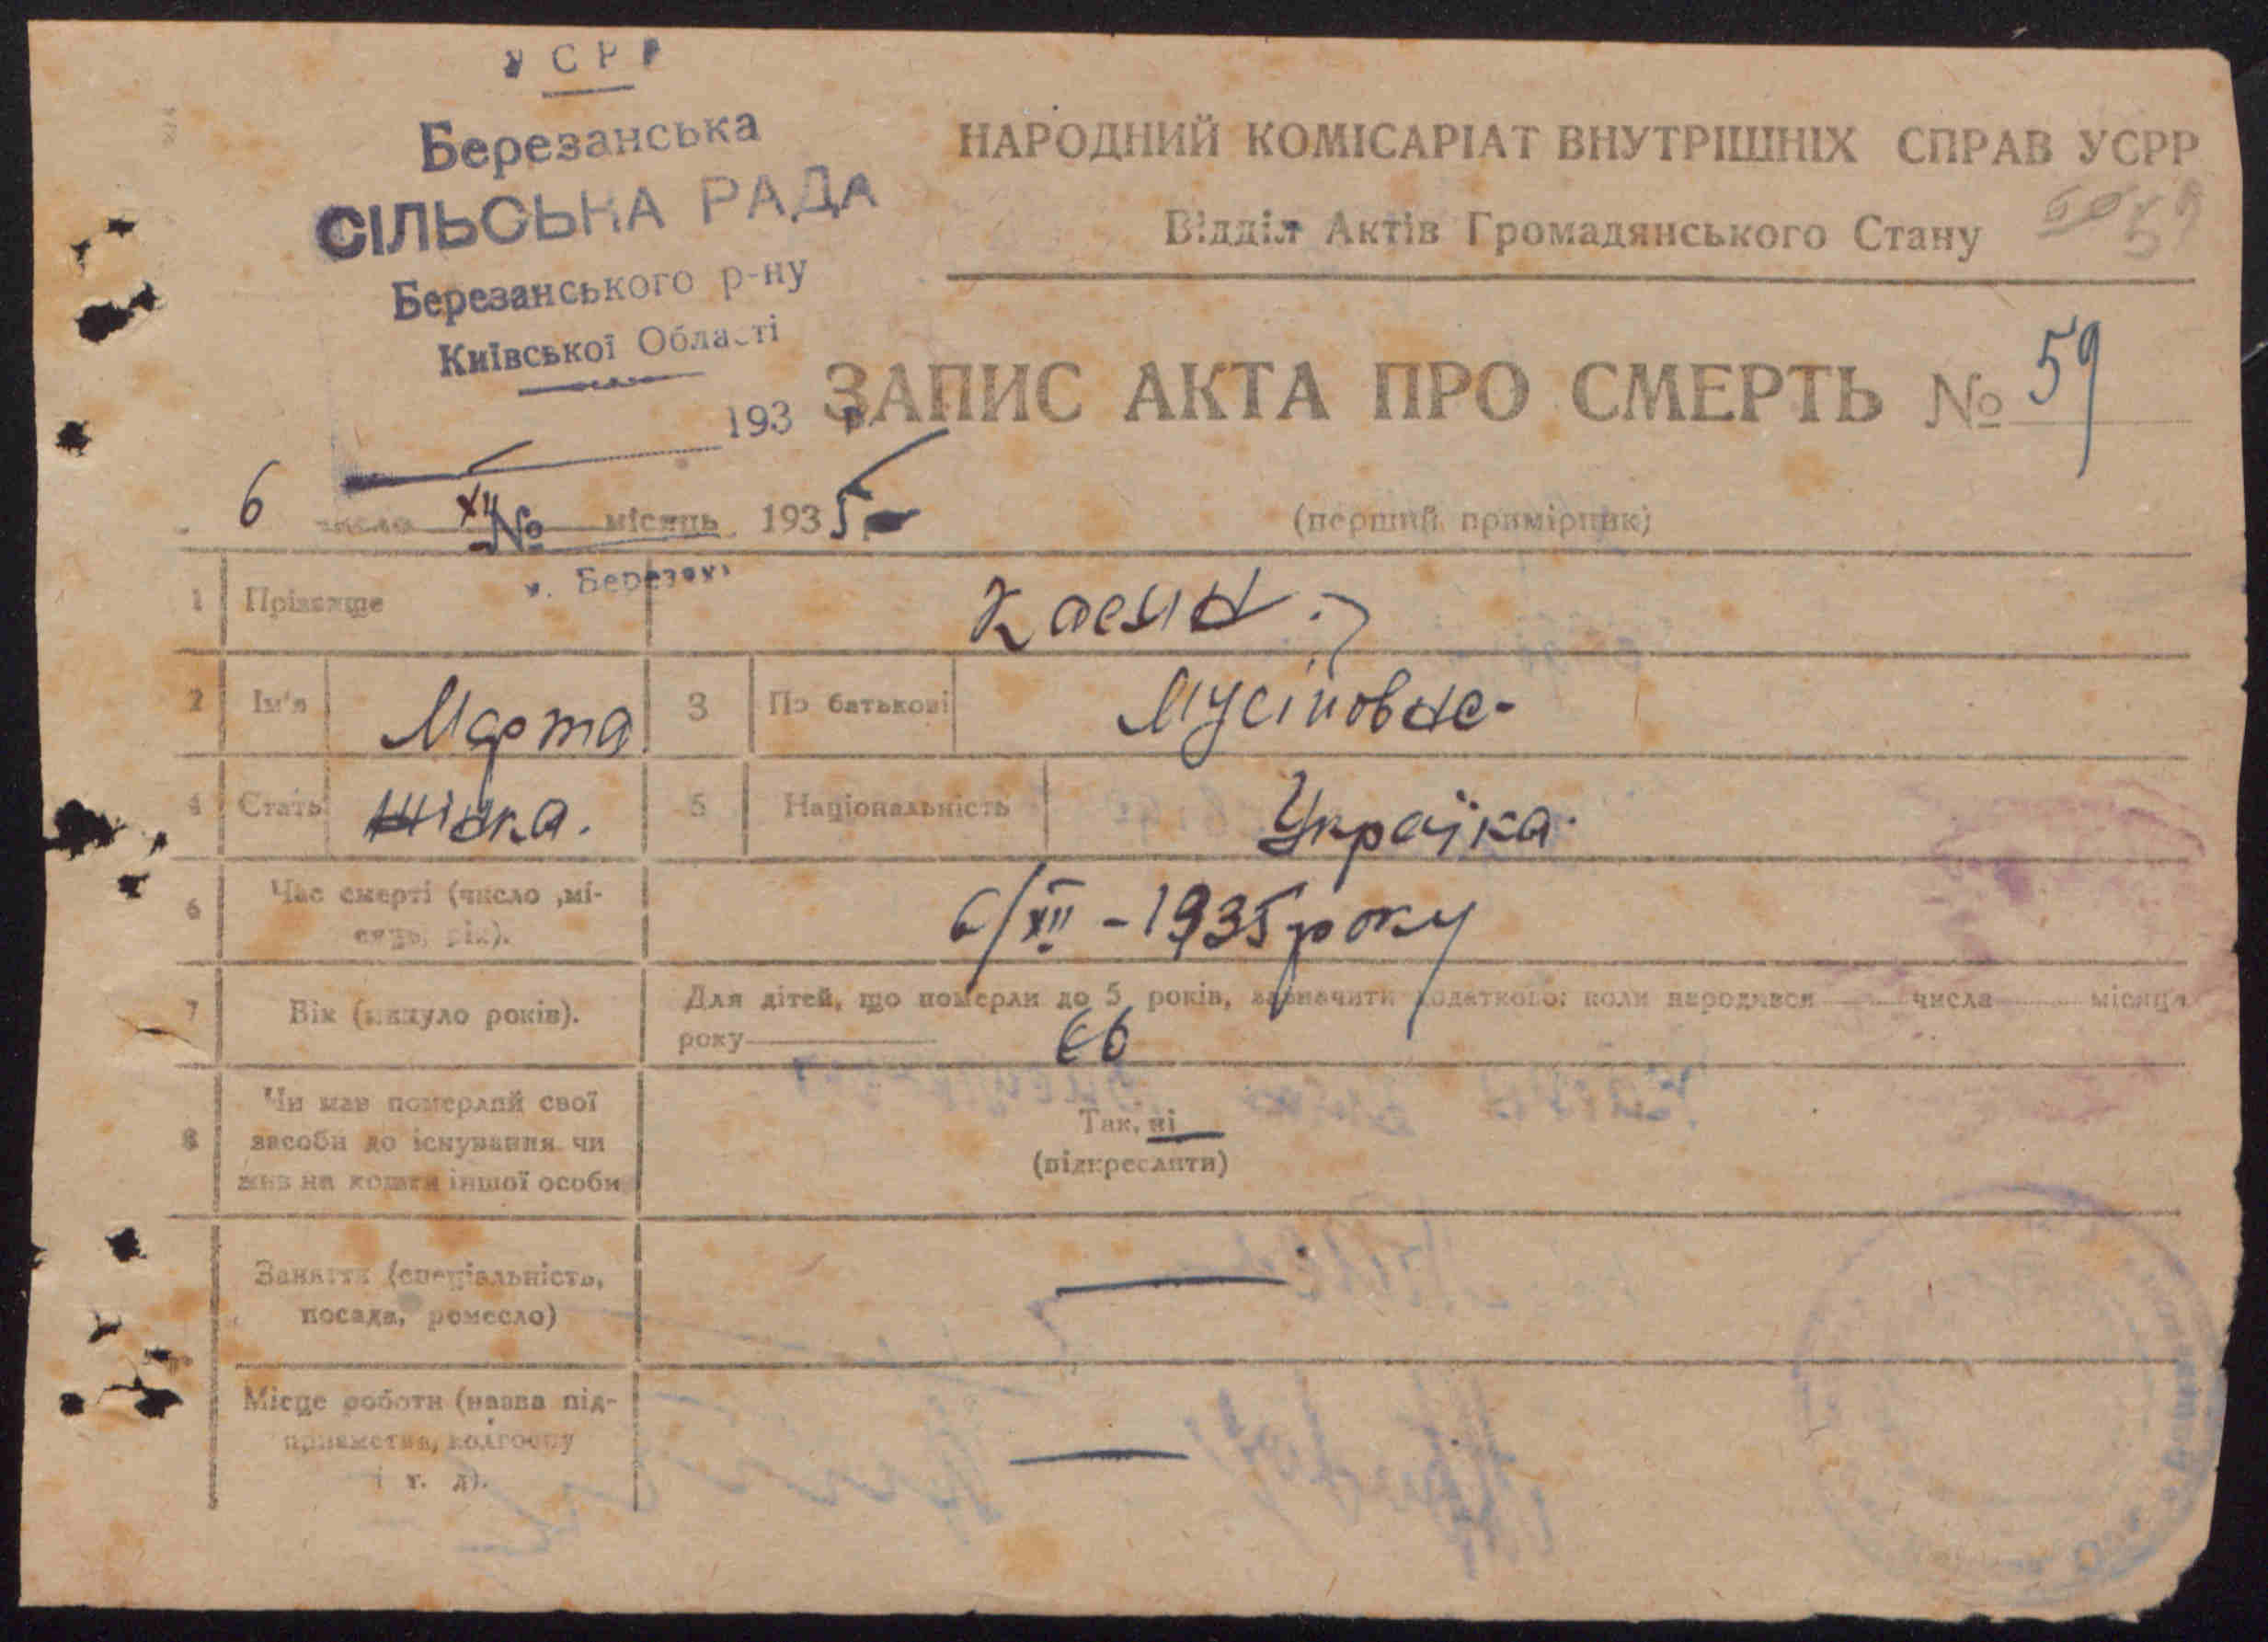 УСРР
Березанська
СІЛЬСЬКА РАДА
Березанського р-ну
Київської Області
193 р.
№
м. Березань
НАРОДНИЙ КОМІСАРІАТ ВНУТРІШНІХ СПРАВ УСРР
Відділ Актів Громадянського Стану
60 59
ЗАПИС АКТА ПРО СМЕРТЬ № 59
6 число XII місяць 1935
(перший примірник)
1 Прізвище Касян
2 Ім'я Марта 3 По батькові Мусіновна
4 Стать Жінка. 5 Національність Українка.
6 Час смерті (число ,мі-
сяць, рік). 6/XII - 1935 року
7 Вік (минуло років). Для дітей, що померли до 5 років, зазначити додатково: коли народився числа місяця
року 66
8 Чи мав померлий свої
засоби до існування чи
жив на кошти іншої особи
Так, ні
(підкреслити)
Заняття (спеціальність,
посада, ремесло)
Місце роботи (назва під-
приємства, колгоспу
і т. д).